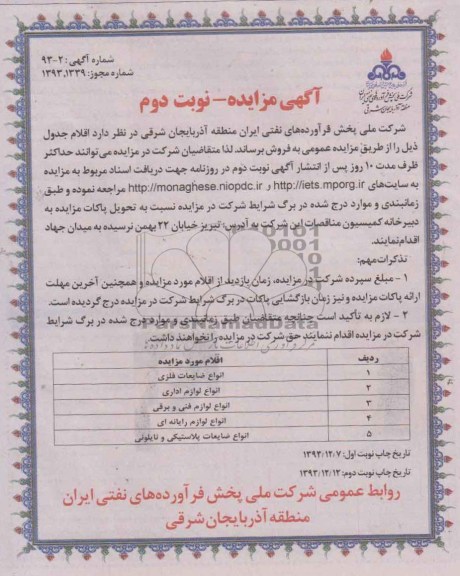 شماره آگهی: ۲-۹۳
شماره مجوز: ۱۳۹۳،۱۳۳۹
شرکت ملی پخش فرآورده‌های نفتی ایران
منطقه آذربایجان شرقی
آگهی مزایده – نوبت دوم
شرکت ملی پخش فرآورده‌های نفتی ایران منطقه آذربایجان شرقی در نظر دارد اقلام جدول
ذیل را از طریق مزایده عمومی به فروش برساند، لذا متقاضیان شرکت در مزایده می توانند حداکثر
ظرف مدت ۱۰ روز پس از انتشار آگهی نوبت دوم در روزنامه جهت دریافت اسناد مربوط به مزایده
به سایت‌های http://iets.mporg.ir و http://monaghese.niopdc.ir مراجعه نموده و طبق
زمانبندی و موارد درج شده در برگ شرایط شرکت در مزایده نسبت به تحویل پاکات مزایده به
دبیرخانه کمیسیون مناقصات این شرکت به آدرس: تبریز خیابان ۲۲ بهمن نرسیده به میدان جهاد
اقدام نمایند.
تذکرات مهم:
۱ – مبلغ سپرده شرکت در مزایده، زمان بازدید از اقلام مورد مزایده و همچنین آخرین مهلت
ارائه پاکات مزایده و نیز زمان بازگشایی پاکات در برگ شرایط شرکت در مزایده درج گردیده است.
۲ – لازم به تأکید است چنانچه متقاضیان طبق زمانبندی و موارد درج شده در برگ شرایط
شرکت در مزایده اقدام ننمایند حق شرکت در مزایده را نخواهند داشت.
ParsNamadData
ردیف اقلام مورد مزایده
۱ انواع ضایعات فلزی
۲ انواع لوازم اداری
۳ انواع لوازم فنی و برقی
۴ انواع لوازم رایانه ای
۵ انواع ضایعات پلاستیکی و نایلونی
تاریخ چاپ نوبت اول: ۱۳۹۳/۱۲/۷
تاریخ چاپ نوبت دوم: ۱۳۹۳/۱۲/۱۲
روابط عمومی شرکت ملی پخش فرآورده‌های نفتی ایران
منطقه آذربایجان شرقی